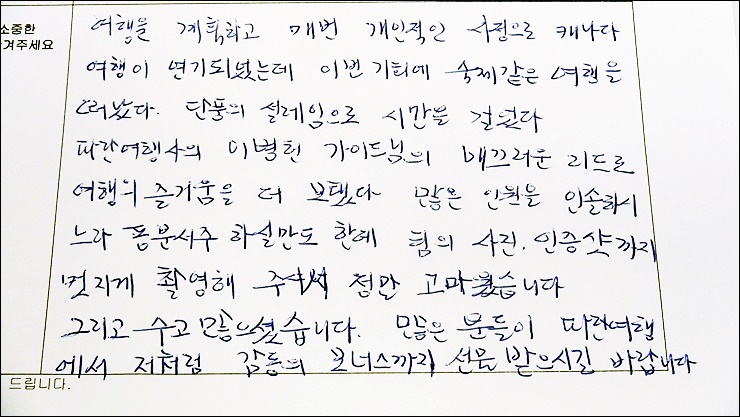 소중한
겨주세요
여행을 계획하고 매번 개인적인 사정으로 캐나다
여행이 연기되었는데 이번 기회에 숙제같은 여행을
떠났다. 단풍의 설레임으로 시간을 걸었다
파란여행사의 이병헌 가이드님의 매끄러운 리드로
여행의 즐거움을 더 보탰다 많은 인원을 인솔하시
느라 동분서주 하실만도 한데 팀의 사진. 인증샷까지
멋지게 촬영해 주셔서 정말 고마웠습니다
그리고 수고 많으셨습니다. 많은 분들이 파란여행
에서 저처럼 감동의 보너스까지 선물 받으시길 바랍니다
드립니다.